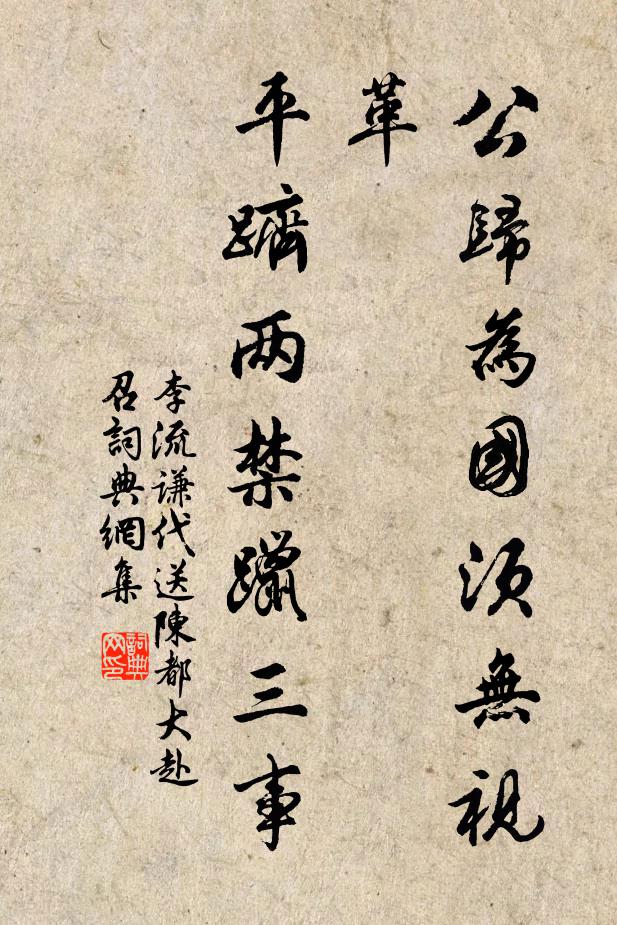 公歸為國須無視
革
平躋两禁躐三事
李流谦代送陳都大赴
召詞典網集
詞典
网印